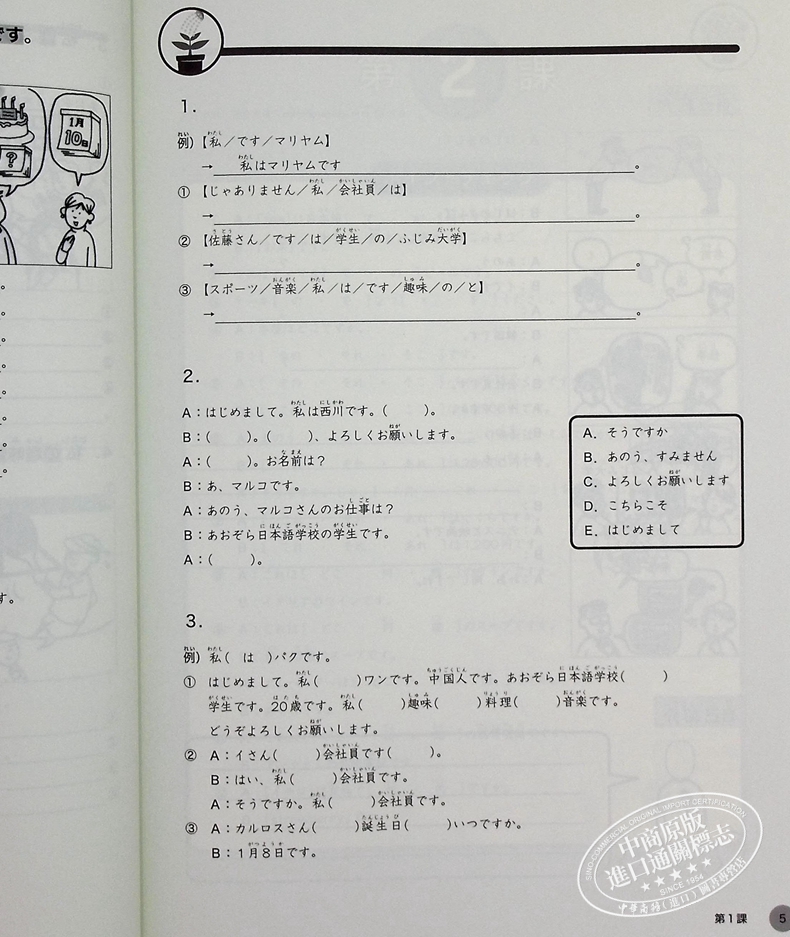 です。
1月
10日
?
1.
例）【私／です／マリヤム】
→ 私はマリヤムです。
① 【じゃありません／私／会社員／は】
→ 。
② 【佐藤さん／です／は／学生／の／ふじみ大学】
→ 。
③ 【スポーツ／音楽／私／は／です／趣味／の／と】
→ 。
2.
A：はじめまして。私は西川です。（　　）。
B：（　　）。（　　）、よろしくお願いします。
A：（　　）。お名前は？
B：あ、マルコです。
A：あのう、マルコさんのお仕事は？
B：あおぞら日本語学校の学生です。
A：（　　）。
A. そうですか
B. あのう、すみません
C. よろしくお願いします
D. こちらこそ
E. はじめまして
3.
例）私（　は　）パクです。
① はじめまして。私（　　）ワンです。中国人です。あおぞら日本語学校（　　）
学生です。20歳です。私（　　）趣味（　　）料理（　　）音楽です。
どうぞよろしくお願いします。
② A：イさん（　　）会社員です（　　）。
B：はい、私（　　）会社員です。
A：そうですか。私（　　）会社員です。
③ A：カルロスさん（　　）誕生日（　　）いつですか。
B：1月8日です。
す。
SINO-COMMERCIAL ORIGINAL IMPORT CERTIFICATION
中商原版
進口通關標志
SINCE 1954
中華商務（進口）圖書專營店
第1課　5